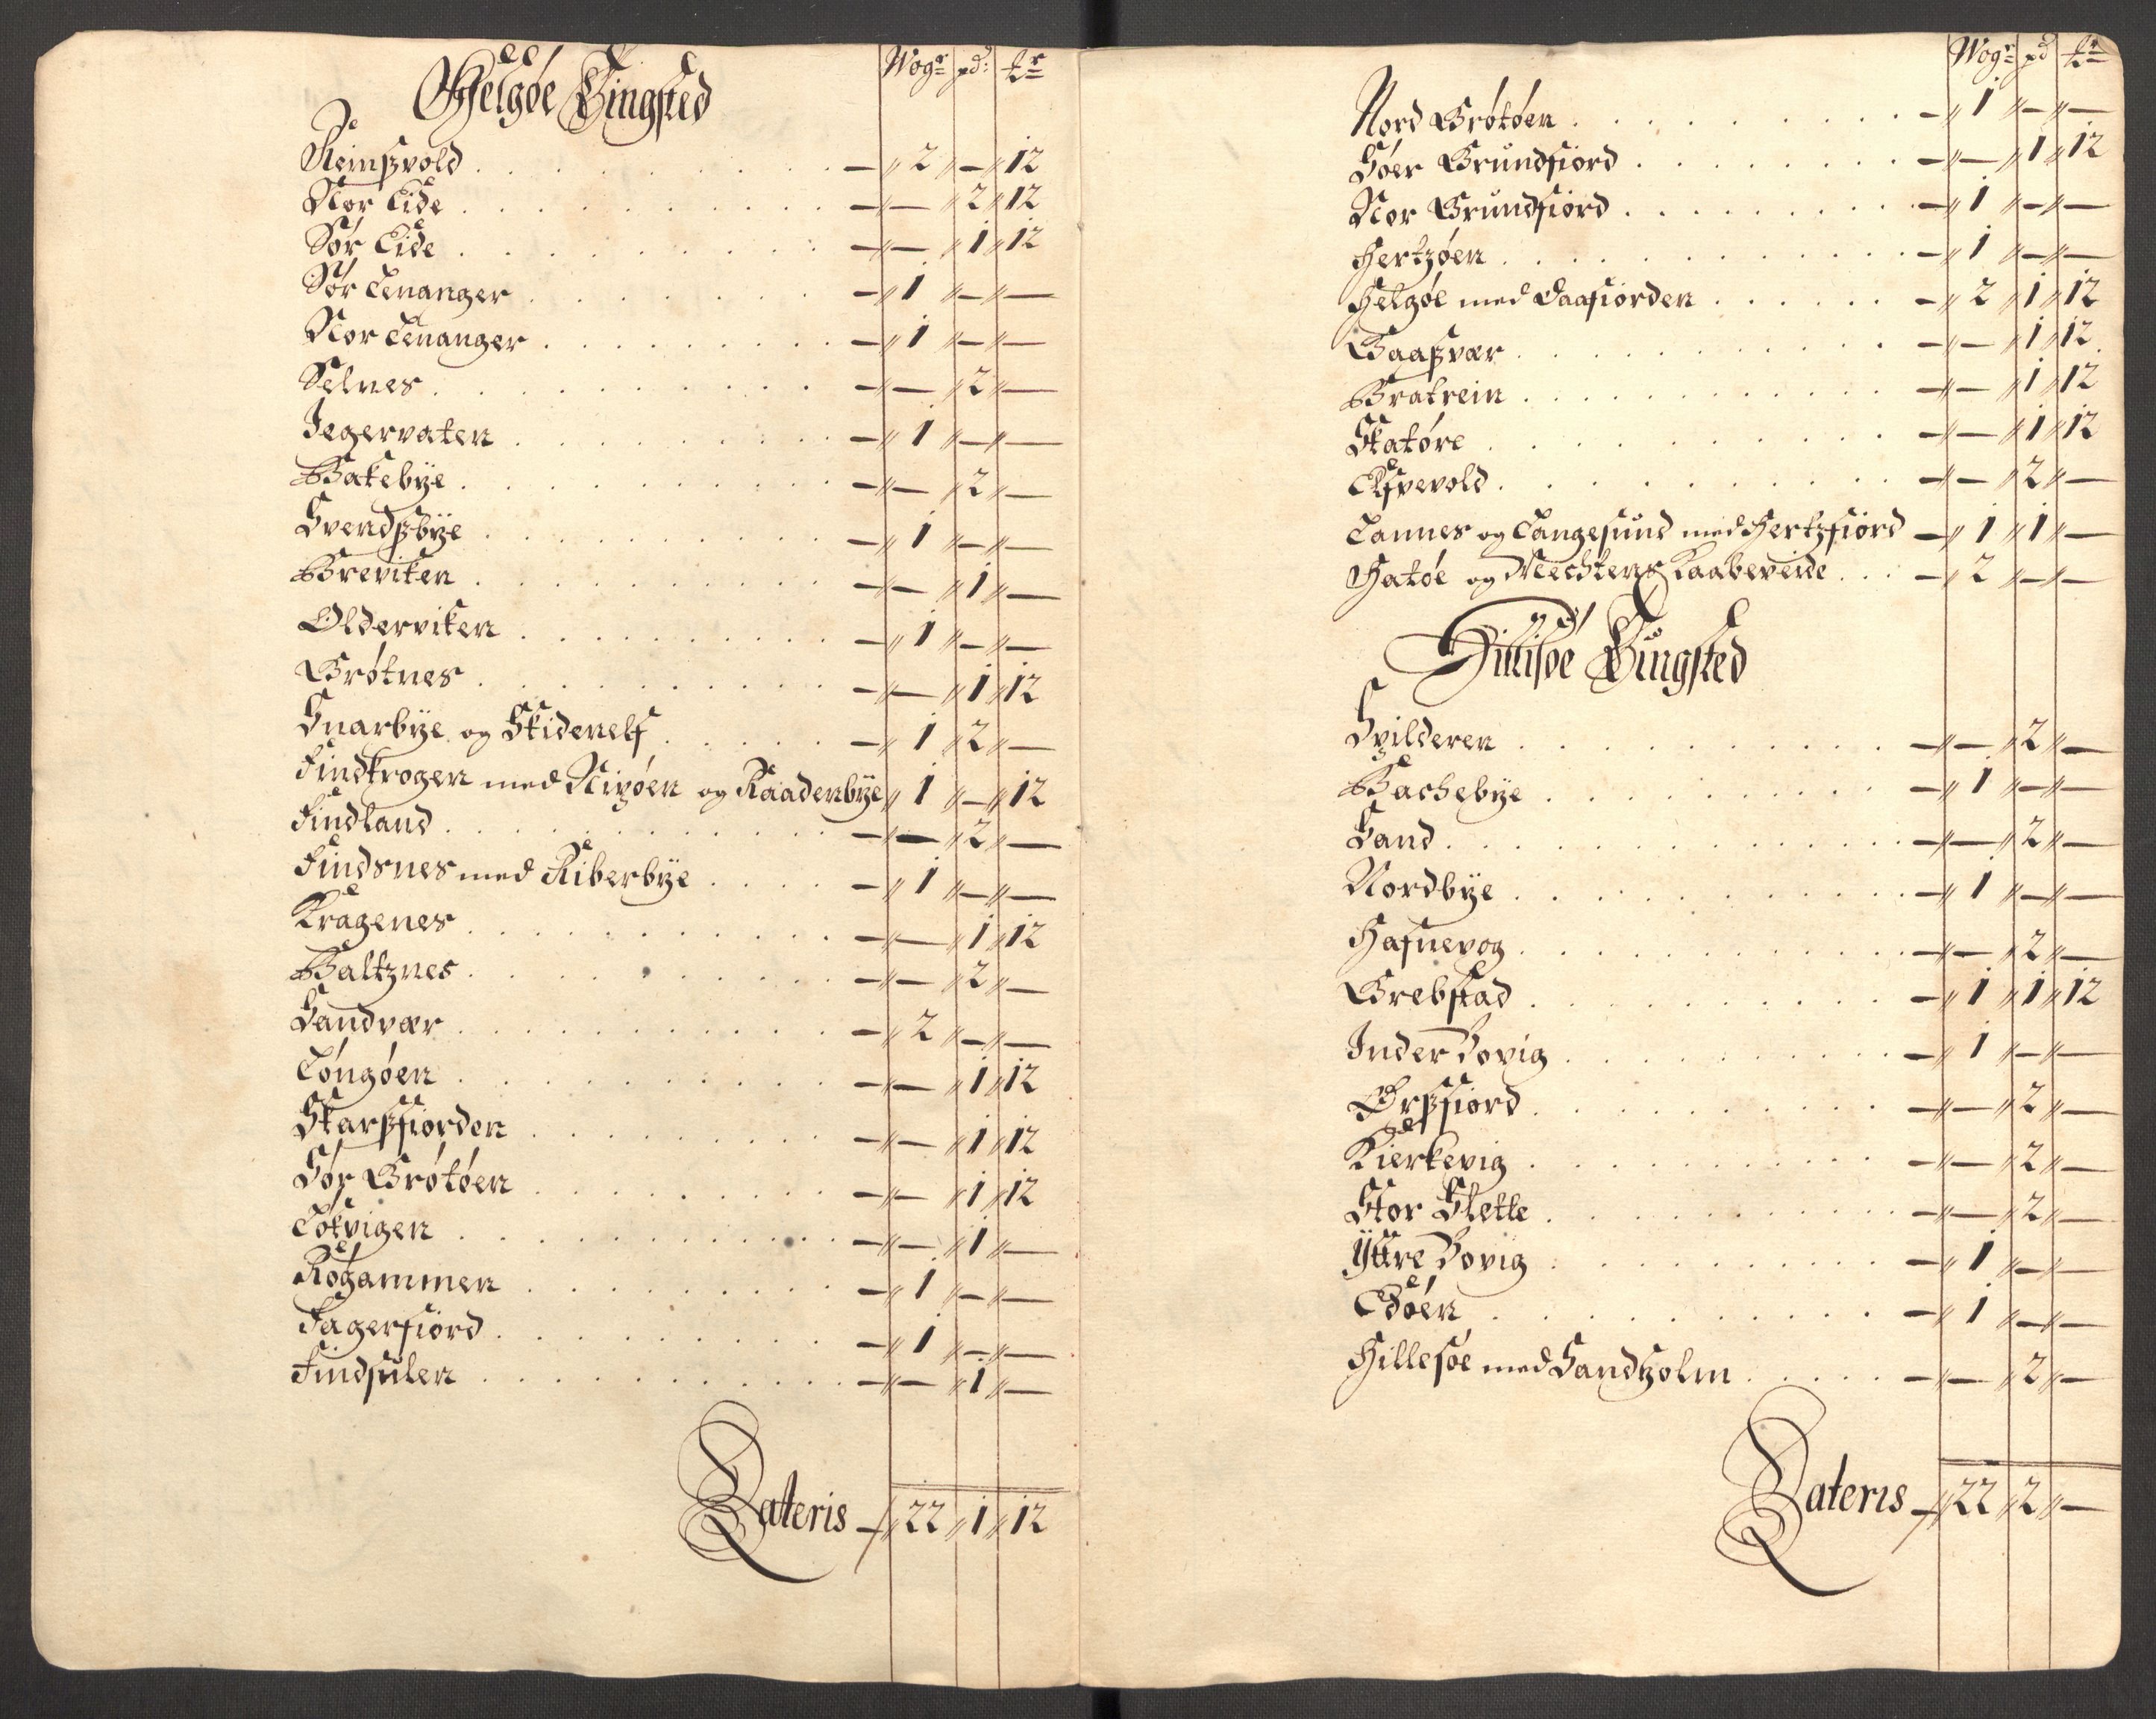 Helgøe Tingsted
Wogr pd: tr
Reinßvold . . . . . . . . . — 2 — 12
Nor Eide . . . . . . . . . — — 2 12
Sør Eide . . . . . . . . . — — 1 12
Sør Lenanger . . . . . . . — 1 — —
Nor Lenanger . . . . . . . — 1 — —
Selnes . . . . . . . . . — — 2 —
Jegervaten . . . . . . . . — 1 — —
Bakebye . . . . . . . . . — — 2 —
Svendßbye . . . . . . . . — 1 — —
Breviken . . . . . . . . . — — 1 —
Olderviken . . . . . . . . — 1 — —
Grøtnes . . . . . . . . . — — 1 12
Snarbye og Skidenelf . . . . . — 1 2 —
Findkrogen med Nipøen og Raadenbye 1 — 12
Findland . . . . . . . . . — — 2 —
Findsnes med Riberbye . . . . — 1 — —
Kragenes . . . . . . . . . — — 1 12
Baltznes . . . . . . . . . — — 2 —
Sandvær . . . . . . . . . — 2 — —
Løngøen . . . . . . . . . — — 1 12
Skarßfiorden . . . . . . . — — 1 12
Sør Grøtøen . . . . . . . — — 1 12
Løkvigen . . . . . . . . . — — 1 —
Røgammen . . . . . . . . — 1 — —
Fagerfiord . . . . . . . . — 1 — —
Findsulen . . . . . . . . . — — 1 —
Lateris — 22 1 12
Wogr pd tr
Nord Grøtøen . . . . . . . — 1 — —
Søer Grundfiord . . . . . . — — 1 12
Nor Grundfiord . . . . . . — 1 — —
Hertzøen . . . . . . . . . — 1 — —
Helgøe med Daafiorden . . . . . — 2 1 12
Gaaßvær . . . . . . . . . — — 1 12
Bratrein . . . . . . . . . — — 1 12
Skatøre . . . . . . . . . — — 1 12
Elfvevold . . . . . . . . . — — 2 —
Lannes og Langesund med Hertzfiord — 1 1 —
Hatøe og Mechtens Kaabeveide . . . — 2 — —
Hillisøe Tingsted
Spilderen . . . . . . . . . — — 2 —
Bachebye . . . . . . . . . — 1 — —
Sand . . . . . . . . . — — 2 —
Nordbye . . . . . . . . . — 1 — —
Hafnevog . . . . . . . . . — — 2 —
Grebstad . . . . . . . . . — 1 1 12
Inder Bovig . . . . . . . . — 1 — —
Ørßfiord . . . . . . . . . — — 2 —
Kierkevig . . . . . . . . . — — 2 —
Stor Slette . . . . . . . . — — 2 —
Yttre Bovig . . . . . . . . — 1 — —
Edøen . . . . . . . . . — 1 — —
Hillesøe med Sandholm . . . . . — — 2 —
Lateris — 22 2 —